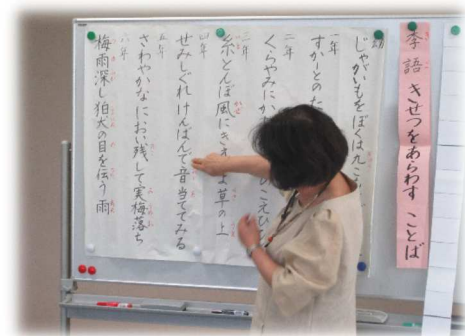 季語 きせつをあらわす ことば
幼
じゃがいもをぼくは九こ
一年
すかとのた
二年
くらやみにか ひこえひ
三年
糸とんぼ風にきす よ草の上
四年
せみしぐれけんばんで音当ててみる
五年
さわやかなにおい残して実梅落ち
六年
梅雨深し狛犬の目を伝う雨